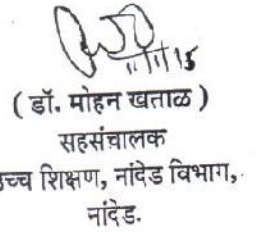 11/11/15
( डॉ. मोहन खताळ )
सहसंचालक
उच्च शिक्षण, नांदेड विभाग,
नांदेड.